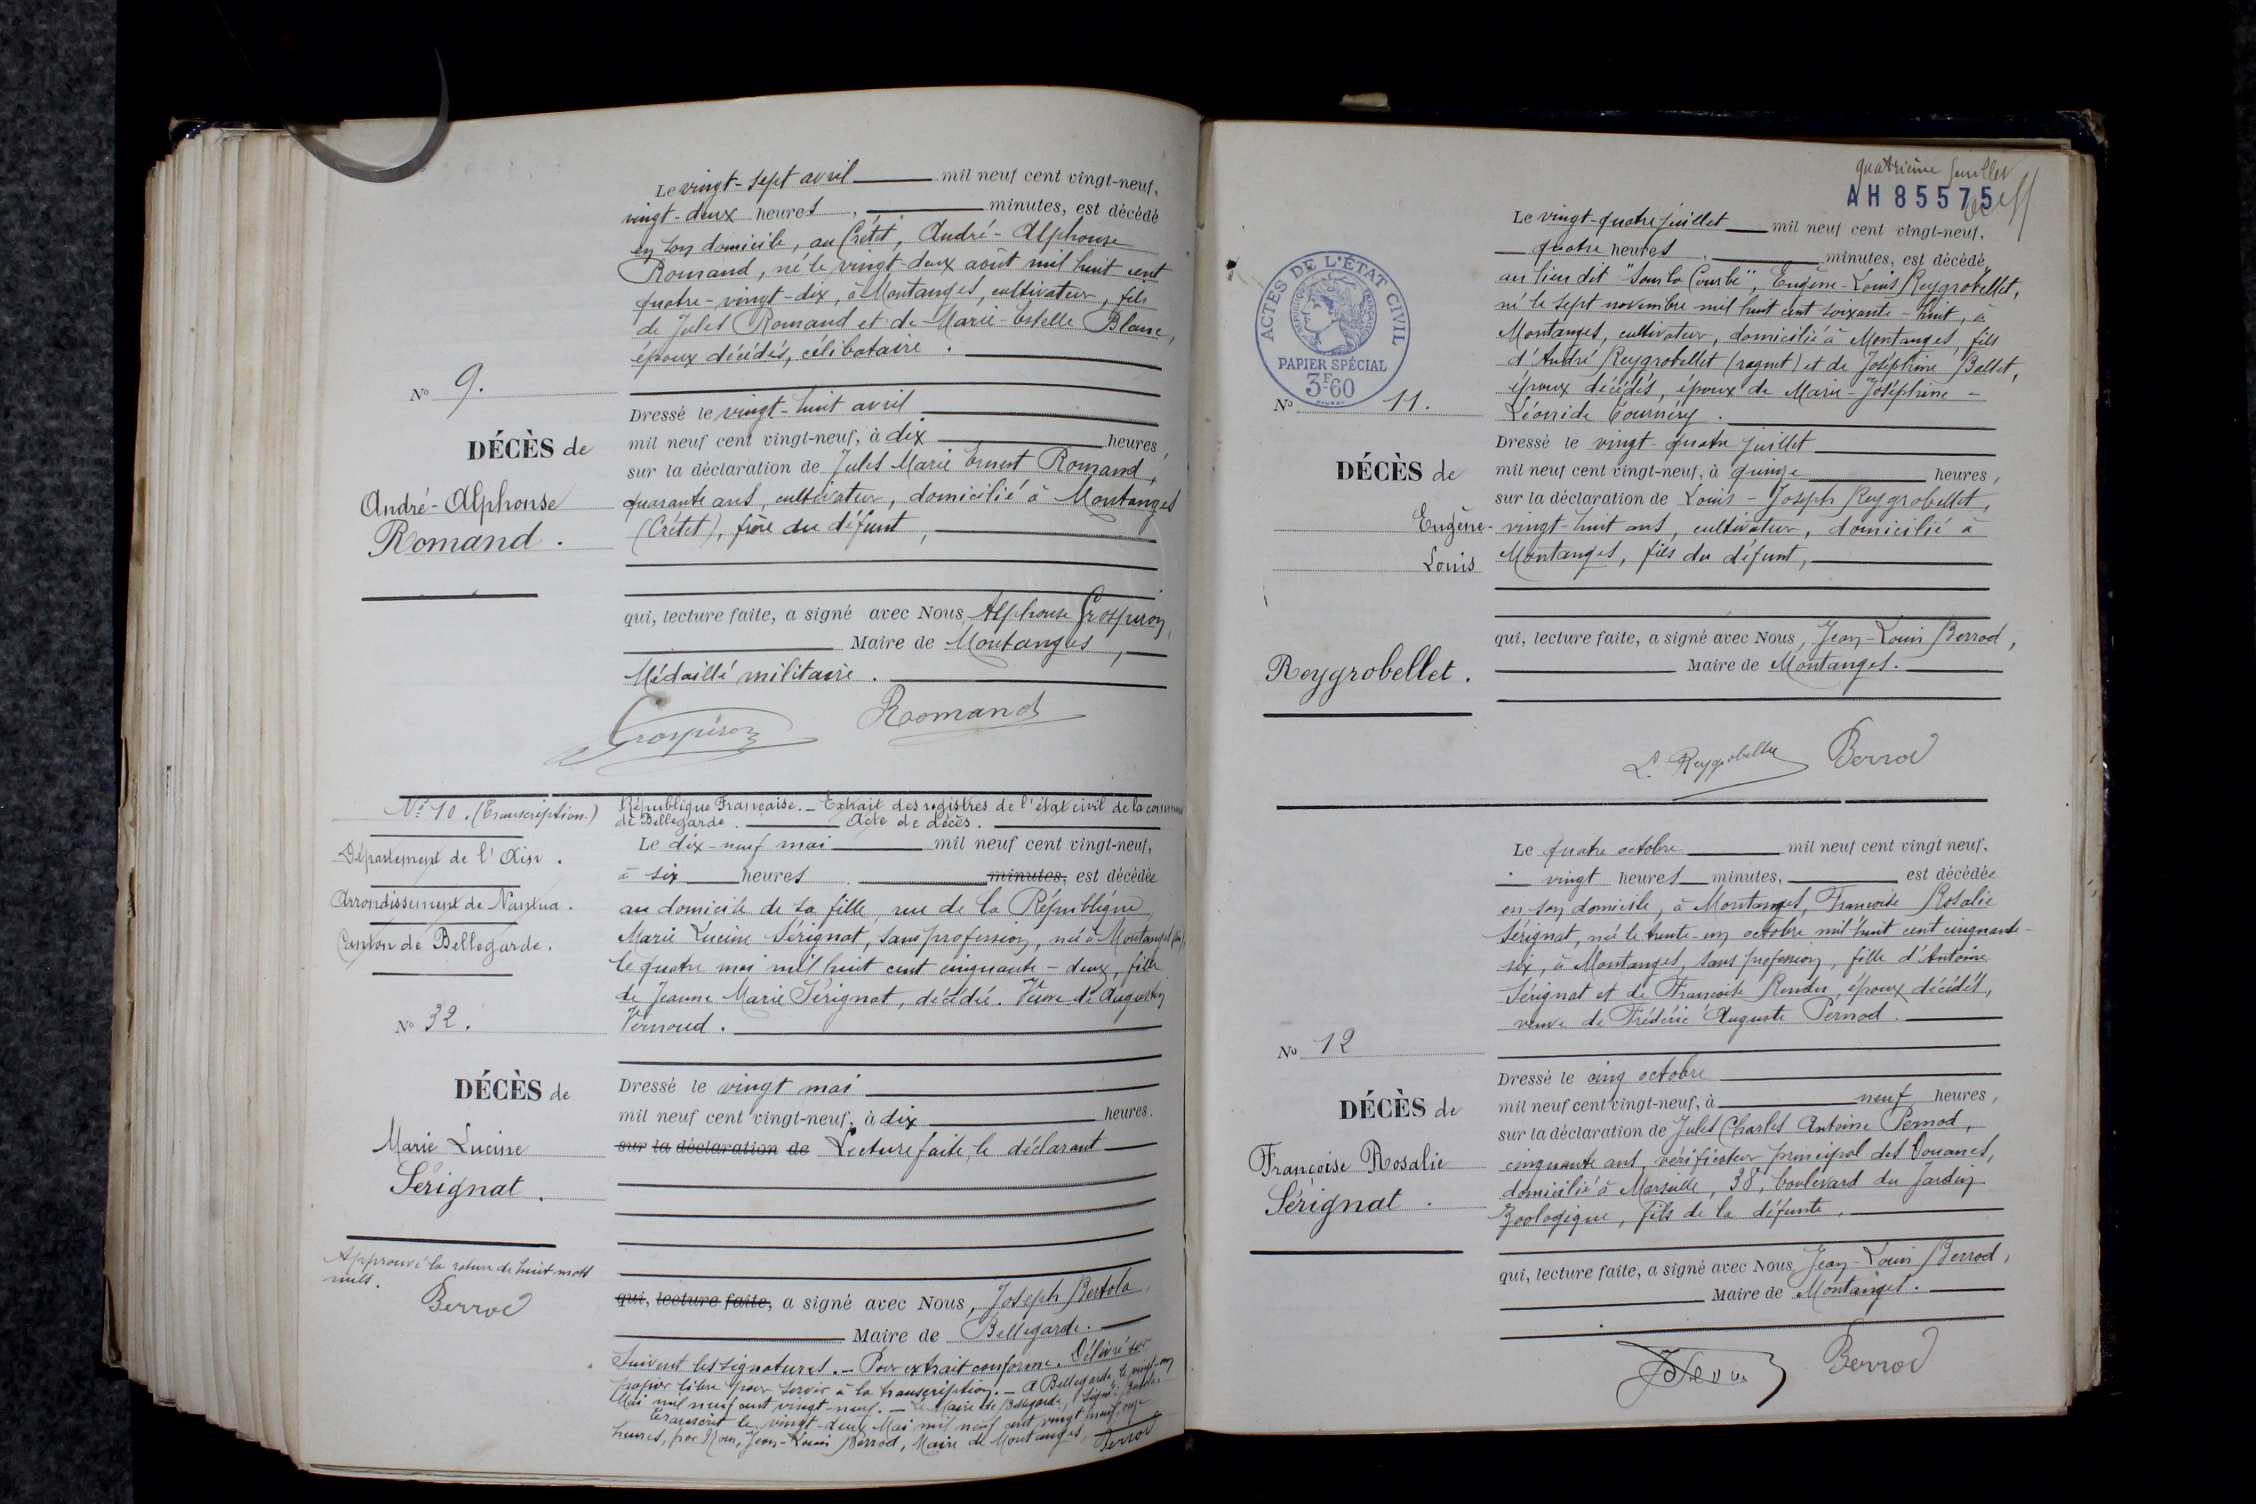 Le vingt-sept avril mil neuf cent vingt-neuf,
vingt-deux heures, minutes, est décédé
en son domicile, au Crétet, André-Alphonse
Romand, né le vingt-deux août mil huit cent
quatre-vingt-dix, à Montanges, cultivateur, fils
de Jules Romand et de Marie-Estelle Blanc,
époux décédés, célibataire.
No 9.
Dressé le vingt-huit avril
mil neuf cent vingt-neuf, à dix heures,
sur la déclaration de Jules Marie Ernest Romand,
quarante ans, cultivateur, domicilié à Montanges
(Crétet), frère du défunt,
DÉCÈS de
André-Alphonse
Romand.
qui, lecture faite, a signé avec Nous, Alphonse Grospiron,
Maire de Montanges,
Médaillé militaire.
Grospiron Romand
No 10. (Transcription.)
Département de l'Ain.
Arrondissement de Nantua.
Canton de Bellegarde.
République Française. — Extrait des registres de l'état civil de la commune
de Bellegarde. Acte de décès.
Le dix-neuf mai mil neuf cent vingt-neuf,
à six heures minutes, est décédée
au domicile de sa fille, rue de la République,
Marie Lucine Sérignat, sans profession, née à Montanges (Ain),
le quatre mai mil huit cent cinquante-deux, fille
de Jeanne Marie Sérignat, décédée. Veuve de Augustin
Vernoud.
No 32.
DÉCÈS de
Marie Lucine
Sérignat.
Dressé le vingt mai
mil neuf cent vingt-neuf, à dix heures.
sur la déclaration de Lecture faite, le déclarant
Approuvé la rature de huit mots
nuls.
Berrod
qui, lecture faite, a signé avec Nous, Joseph Bertola,
Maire de Bellegarde.
Suivent les signatures. — Pour extrait conforme. Délivré sur
papier libre pour servir à la transcription. — A Bellegarde, le vingt-un
Mai mil neuf cent vingt-neuf. — Le Maire de Bellegarde, Signé: Bertola
Transcrit le vingt-deux Mai mil neuf cent vingt-neuf, onze
heures, par Nous, Jean-Louis Berrod, Maire de Montanges. Berrod
quatrième feuillet
AH 85575
ACTES DE L'ÉTAT CIVIL
RÉPUBLIQUE FRANÇAISE
PAPIER SPÉCIAL
3F60
Le vingt-quatre juillet mil neuf cent vingt-neuf,
quatre heures, minutes, est décédé,
au lieu dit "Sous la Courbe", Eugène-Louis Reygrobellet,
né le sept novembre mil huit cent soixante-huit, à
Montanges, cultivateur, domicilié à Montanges, fils
d'André Reygrobellet (ragnet) et de Joséphine Ballet,
époux décédés, époux de Marie-Joséphine-
Léonide Tournéry.
No 11.
Dressé le vingt-quatre juillet
mil neuf cent vingt-neuf, à quinze heures,
sur la déclaration de Louis-Joseph Reygrobellet,
vingt-huit ans, cultivateur, domicilié à
Montanges, fils du défunt,
DÉCÈS de
Eugène-
Louis
Reygrobellet.
qui, lecture faite, a signé avec Nous, Jean-Louis Berrod,
Maire de Montanges.
L. Reygrobellet Berrod
Le quatre octobre mil neuf cent vingt neuf,
vingt heures minutes, est décédée
en son domicile, à Montanges, Françoise Rosalie
Sérignat, née le trente-un octobre mil huit cent cinquante-
six, à Montanges, sans profession, fille d'Antoine
Sérignat et de Françoise Render, époux décédés,
veuve de Frédéric Auguste Pernod.
No 12
Dressé le cinq octobre
mil neuf cent vingt-neuf, à neuf heures,
sur la déclaration de Jules Charles Antoine Pernod,
cinquante ans, vérificateur principal des Douanes,
domicilié à Marseille, 38, boulevard du Jardin
Zoologique, fils de la défunte,
DÉCÈS de
Françoise Rosalie
Sérignat.
qui, lecture faite, a signé avec Nous, Jean-Louis Berrod,
Maire de Montanges.
Berrod